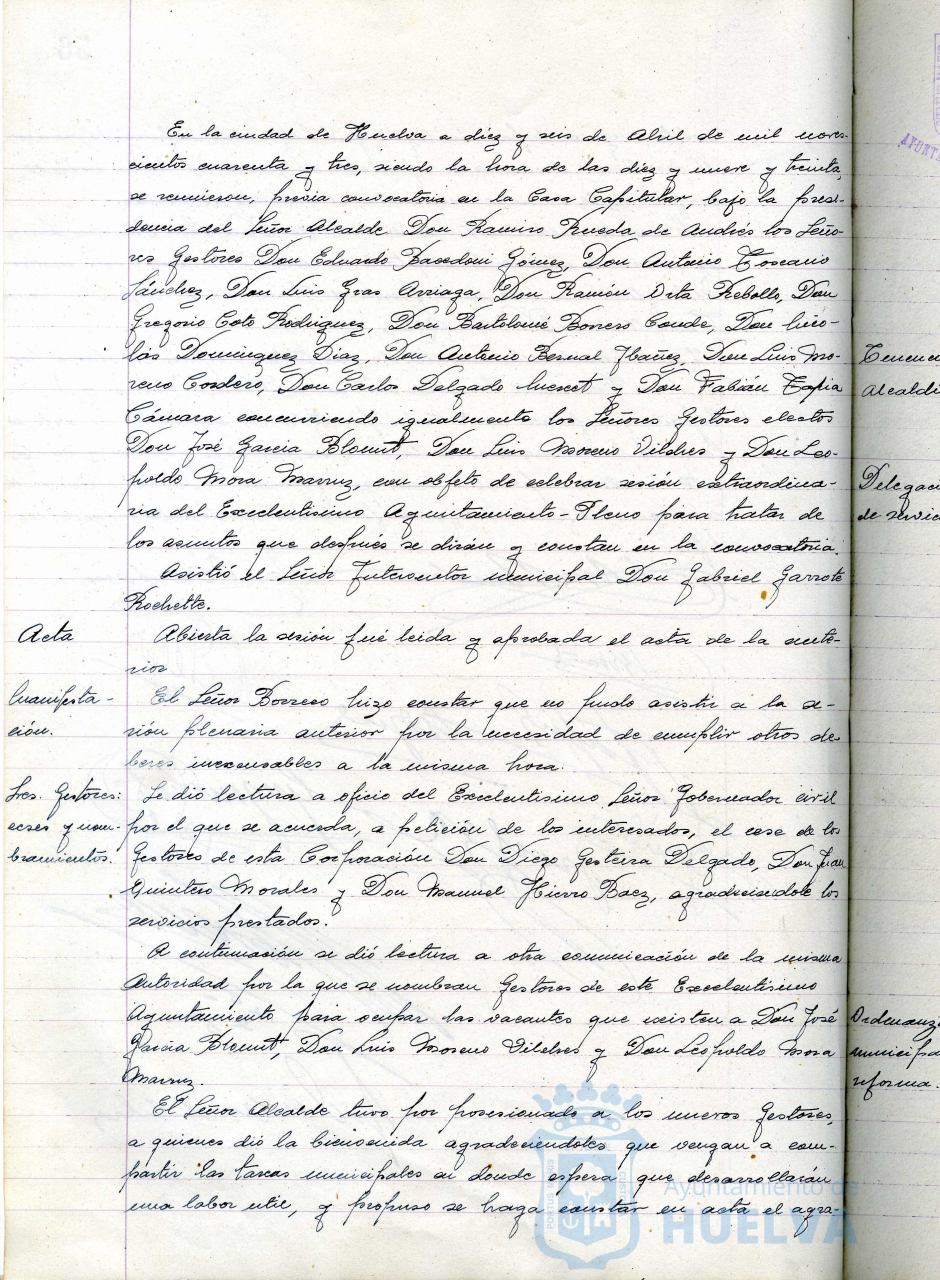 En la ciudad de Huelva a diez y seis de Abril de mil nove-
cientos cuarenta y tres, siendo la hora de las diez y nueve y treinta,
se reunieron, previa convocatoria en la Casa Capitular, bajo la presi-
dencia del Señor Alcalde Don Ramiro Rueda de Andrés los Seño-
res Gestores Don Eduardo Gómez, Don Antonio Toscano
Sánchez, Don Luis Gras Arriaga, Don Ramón Orta Rebollo, Don
Gregorio Coto Rodriguez, Don Bartolomé Borrero Conde, Don Nico-
lás Dominguez Díaz, Don Antonio Bernal Ibañez, Don Luis Mo-
reno Cordero, Don Carlos Delgado y Don Fabián Tapia
Cámara concurriendo igualmente los Señores Gestores electos
Don José Garcia Don Luis Moreno Vilches y Don Leo-
poldo Mora Marruz, con objeto de celebrar sesión extraordina-
ria del Excelentisimo Ayuntamiento-Pleno para tratar de
los asuntos que después se dirán y constan en la convocatoria.
Asistió el Señor Interventor municipal Don Gabriel Garrote
Rochette.
Acta
Abierta la sesión fué leida y aprobada el acta de la ante-
rior
Manifesta-
ción.
El Señor Borrero hizo constar que no pudo asistir a la se-
sión plenaria anterior por la necesidad de cumplir otros de-
beres inexcusables a la misma hora.
Sres. Gestores:
ceses y nom-
bramientos.
Se dió lectura a oficio del Excelentisimo Señor Gobernador civil
por el que se acuerda, a petición de los interesados, el cese de los
Gestores de esta Corporación Don Diego Gesteira Delgado, Don Juan
Quintero Morales y Don Manuel Hierro Baez, agradeciendole los
servicios prestados.
A continuación se dió lectura a otra comunicación de la misma
Autoridad por la que se nombran Gestores de este Excelentisimo
Ayuntamiento para ocupar las vacantes que existen a Don José
Garcia Don Luis Moreno Vilches y Don Leopoldo Mora
Marruz.
El Señor Alcalde tuvo por posesionado a los nuevos Gestores,
a quienes dió la bienvenida agradeciendoles que vengan a com-
partir las tareas municipales en donde espera que desarrollarán
una labor util, y propuso se haga constar en acta el agra-
Ayuntamiento de
HUELVA
AYUNTA
Tenenc
Alcaldi
Delegaci
de servic
Ordenanz
municipa
reforma.